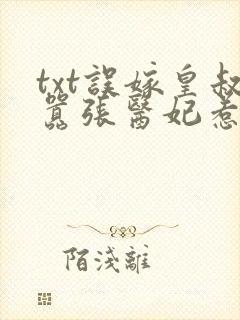 txt誤嫁皇叔
囂張醫妃惹
陌淺離